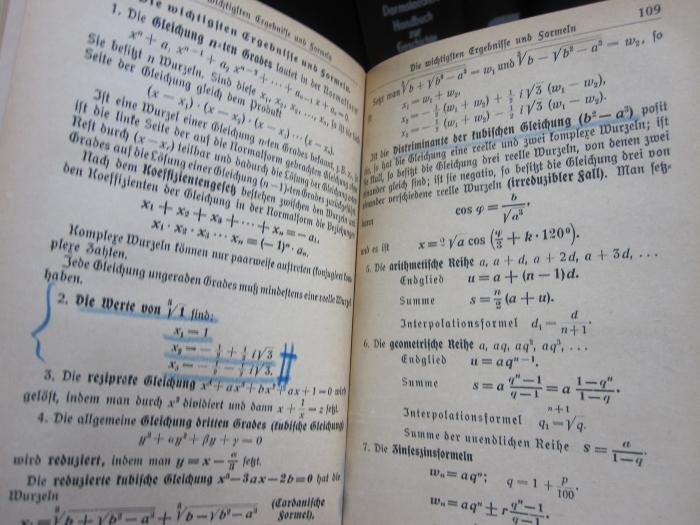 Die wichtigsten Ergebnisse und Formeln
Die wichtigsten Ergebnisse und Formeln.
1. Die Gleichung n-ten Grades lautet in der Normalform
xⁿ + a₁ xⁿ⁻¹ + a₂ xⁿ⁻² + ··· + aₙ₋₁ x + aₙ = 0.
Sie besitzt n Wurzeln. Sind diese x₁, x₂, x₃, ..., xₙ, so ist die linke
Seite der Gleichung gleich dem Produkt
(x − x₁) · (x − x₂) · (x − x₃) ... (x − xₙ).
Ist eine Wurzel einer Gleichung n-ten Grades bekannt, z.B. x₁, so
ist die linke Seite der auf die Normalform gebrachten Gleichung ohne
Rest durch (x − x₁) teilbar und dadurch die Lösung der Gleichung n-ten
Grades auf die Lösung einer Gleichung (n − 1)-ten Grades zurückgeführt.
Nach dem Koeffizientengesetz bestehen zwischen den Wurzeln und
den Koeffizienten der Gleichung in der Normalform die Beziehungen
x₁ + x₂ + x₃ + ··· + xₙ = − a₁,
x₁ · x₂ · x₃ ... xₙ = (−1)ⁿ · aₙ.
Komplexe Wurzeln können nur paarweise auftreten (konjugiert kom-
plexe Zahlen.
Jede Gleichung ungeraden Grades muß mindestens eine reelle Wurzel
haben.
2. Die Werte von ³√1 sind:
x₁ = 1
x₂ = − ½ + ½ i√3
x₃ = − ½ − ½ i√3.
3. Die reziproke Gleichung x⁴ + ax³ + bx² + ax + 1 = 0 wird
gelöst, indem man durch x² dividiert und dann x + 1/x = z setzt.
4. Die allgemeine Gleichung dritten Grades (kubische Gleichung)
y³ + αy² + βy + γ = 0
wird reduziert, indem man y = x − α/3 setzt.
Die reduzierte kubische Gleichung x³ − 3ax − 2b = 0 hat die
Wurzeln
x₁ = ³√b + √b² − a³ + ³√b − √b² − a³ (Cardanische
Formel),
Handbuch
zur
Geschichte
Die wichtigsten Ergebnisse und Formeln 109
Setzt man ³√b + √b² − a³ = w₁ und ³√b − √b² − a³ = w₂, so
ist
x₁ = w₁ + w₂,
x₂ = − ½ (w₁ + w₂) + ½ i√3 (w₁ − w₂),
x₃ = − ½ (w₁ + w₂) − ½ i√3 (w₁ − w₂).
Ist die Diskriminante der kubischen Gleichung (b² − a³) positiv
so hat die Gleichung eine reelle und zwei komplexe Wurzeln; ist
sie Null, so besitzt die Gleichung drei reelle Wurzeln, von denen zwei
einander gleich sind; ist sie negativ, so besitzt die Gleichung drei von
einander verschiedene reelle Wurzeln (irreduzibler Fall). Man setzt
dann
cos φ = b/√a³,
und es ist x = 2 √a cos (φ/3 + k · 120°).
5. Die arithmetische Reihe a, a + d, a + 2d, a + 3d, ...
Endglied u = a + (n − 1) d.
Summe s = n/2 (a + u).
Interpolationsformel d₁ = d/n+1.
6. Die geometrische Reihe a, aq, aq², aq³, ...
Endglied u = aqⁿ⁻¹.
Summe s = a qⁿ−1/q−1 = a 1−qⁿ/1−q.
Interpolationsformel q₁ = ⁿ⁺¹√q.
Summe der unendlichen Reihe s = a/1−q
7. Die Zinseszinsformeln
wₙ = aqⁿ; q = 1 + p/100.
wₙ = aqⁿ ± r qⁿ−1/q−1.